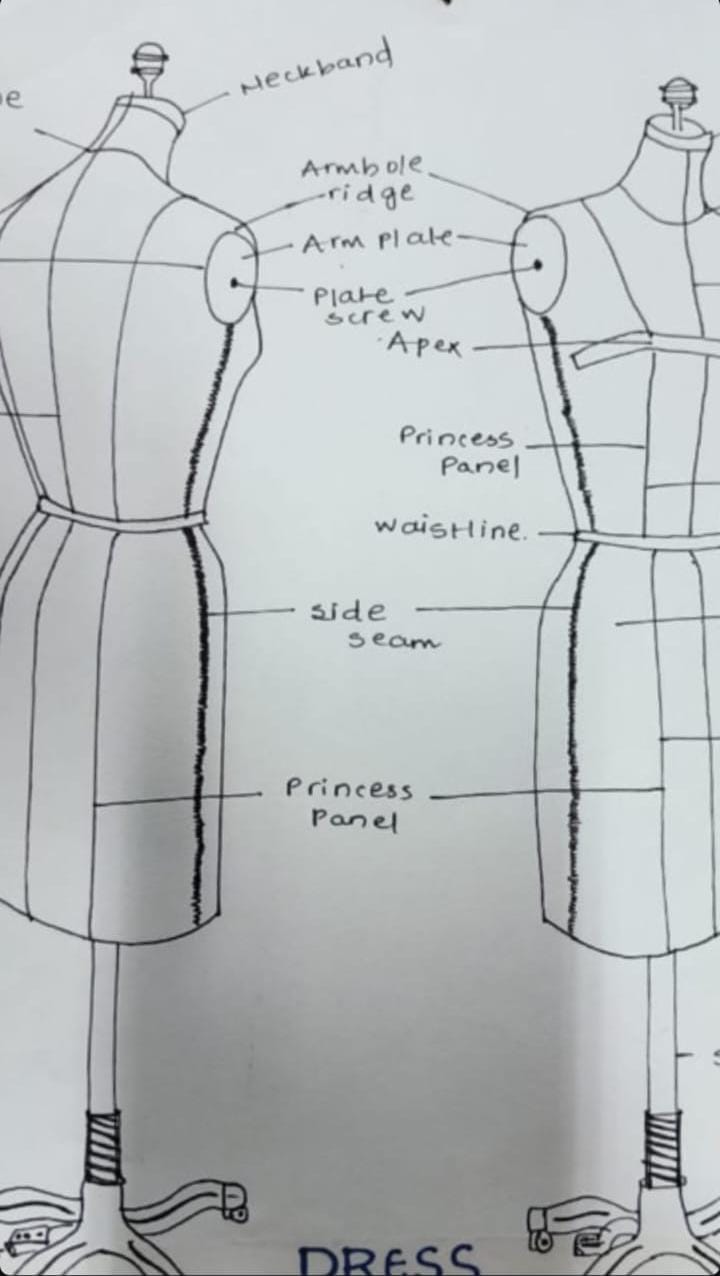 Neckband
e
Armhole
ridge
Arm Plate
Plate
screw
Apex
Princess
Panel
Waistline.
side
seam
Princess
Panel
S
DRESS